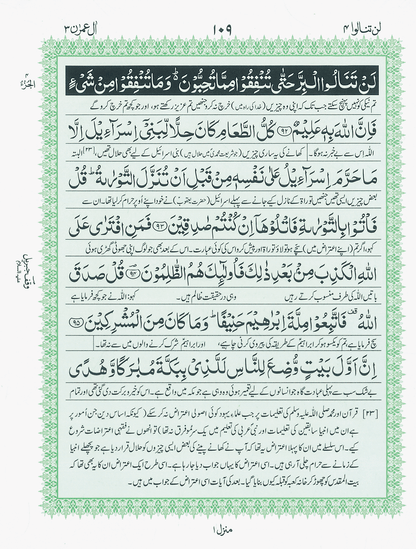 لن تنالوا ۴
۱۰۹
اٰل عمرٰن ۳
لَنْ تَنَالُوا الْبِرَّ حَتّٰى تُنْفِقُوْا مِمَّا تُحِبُّوْنَ ؕ وَمَا تُنْفِقُوْا مِنْ شَیْءٍ
تم نیکی کو نہیں پہنچ سکتے جب تک کہ اپنی وہ چیزیں (خدا کی راہ میں) خرچ نہ کرو جنھیں تم عزیز رکھتے ہو، اور جو کچھ تم خرچ کرو گے
فَاِنَّ اللّٰهَ بِهٖ عَلِیْمٌ ﴿۹۲﴾ كُلُّ الطَّعَامِ كَانَ حِلًّا لِّبَنِیْۤ اِسْرَآءِیْلَ اِلَّا
اللہ اس سے بے خبر نہ ہوگا۔ کھانے کی یہ ساری چیزیں (جو شریعت محمدیؐ میں حلال ہیں) بنی اسرائیل کے لیے بھی حلال تھیں، [۲۳] البتہ
مَا حَرَّمَ اِسْرَآءِیْلُ عَلٰى نَفْسِهٖ مِنْ قَبْلِ اَنْ تُنَزَّلَ التَّوْرٰىةُ ؕ قُلْ
بعض چیزیں ایسی تھیں جنھیں توراۃ کے نازل کیے جانے سے پہلے اسرائیل (حضرت یعقوبؑ) نے خود اپنے اوپر حرام کر لیا تھا۔ ان سے
فَاْتُوْا بِالتَّوْرٰىةِ فَاتْلُوْهَاۤ اِنْ كُنْتُمْ صٰدِقِیْنَ ﴿۹۳﴾ فَمَنِ افْتَرٰى عَلَى
کہو، اگر تم (اپنے اعتراض میں) سچے ہو تو لاؤ توراۃ اور پیش کرو اس کی کوئی عبارت۔ اس کے بعد بھی جو لوگ اپنی جھوٹی گھڑی ہوئی
اللّٰهِ الْكَذِبَ مِنْۢ بَعْدِ ذٰلِكَ فَاُولٰٓئِكَ هُمُ الظّٰلِمُوْنَ ﴿۹۴﴾ قُلْ صَدَقَ
باتیں اللہ کی طرف منسوب کرتے رہیں وہی درحقیقت ظالم ہیں۔ کہو، اللہ نے جو کچھ فرمایا ہے
اللّٰهُ ۫ فَاتَّبِعُوْا مِلَّةَ اِبْرٰهِیْمَ حَنِیْفًا ؕ وَمَا كَانَ مِنَ الْمُشْرِكِیْنَ ﴿۹۵﴾
سچ فرمایا ہے، تم کو یکسو ہو کر ابراہیمؑ کے طریقہ کی پیروی کرنی چاہیے، اور ابراہیمؑ شرک کرنے والوں میں سے نہ تھا۔
اِنَّ اَوَّلَ بَیْتٍ وُّضِعَ لِلنَّاسِ لَلَّذِیْ بِبَكَّةَ مُبٰرَكًا وَّهُدًى
بے شک سب سے پہلی عبادت گاہ جو انسانوں کے لیے تعمیر ہوئی وہ وہی ہے جو مکہ میں واقع ہے۔ اس کو خیر و برکت دی گئی تھی اور تمام
[۲۳] قرآن اور محمد صلی اللہ علیہ وسلم کی تعلیمات پر جب علماء یہود کوئی اصولی اعتراض نہ کر سکے (کیونکہ اساس دین جن امور پر
ہے ان میں انبیا سابقین کی تعلیمات اور نبی عربی کی تعلیم میں یک سر مو فرق نہ تھا) تو انھوں نے فقہی اعتراضات شروع
کیے۔ اس سلسلے میں ان کا پہلا اعتراض یہ تھا کہ آپ نے کھانے پینے کی بعض ایسی چیزوں کو حلال قرار دیا ہے جو پچھلے انبیا
کے زمانے سے حرام چلی آ رہی ہیں۔ اسی اعتراض کا یہاں جواب دیا جا رہا ہے۔ اسی طرح ایک اعتراض ان کا یہ بھی تھا کہ
بیت المقدس کو چھوڑ کر خانہ کعبہ کو قبلہ کیوں بنایا گیا۔ بعد کی آیات اسی اعتراض کے جواب میں ہیں۔
منزل ۱